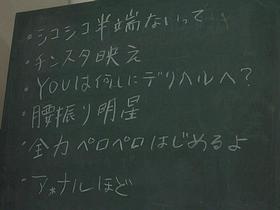 ・シコシコ半端ないって
・チンスタ映え
・YOUは何しにデリヘルへ?
・腰振り明星
・全力ペロペロはじめるよ
・ア*ナルほど